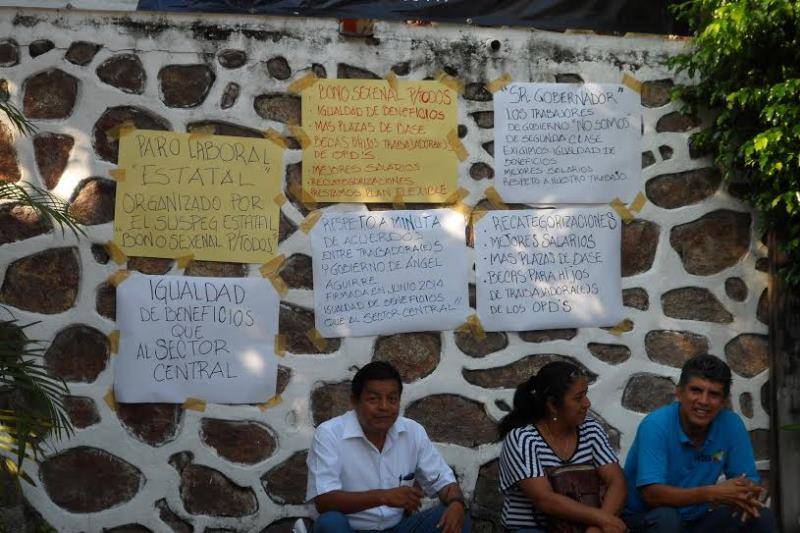 PARO LABORAL
"ESTATAL"
ORGANIZADO POR
EL SUSPEG ESTATAL
BONO SEXENAL P/TODOS
BONO SEXENAL P/TODOS
• IGUALDAD DE BENEFICIOS
• MAS PLAZAS DE BASE
• BECAS HIJOS TRABAJADORA(E)S
DE OPD'S
• MEJORES SALARIOS
• RECATEGORIZACIONES
• PRESTAMOS PLAN FLEXIBLE
"SR. GOBERNADOR"
LOS TRABAJORES
DE GOBIERNO "NO SOMOS
DE SEGUNDA CLASE
EXIGIMOS IGUALDAD DE
BENEFICIOS
MEJORES SALARIOS
RESPETO A NUESTRO TRABAJO
IGUALDAD
DE BENEFICIOS
QUE
AL SECTOR
CENTRAL
RESPETO A MINUTA
DE ACUERDOS
ENTRE TRABAJADORA(E)S
Y GOBIERNO DE ÁNGEL
AGUIRRE
FIRMADA EN JUNIO 2014
IGUALDAD DE BENEFICIOS
QUE AL SECTOR CENTRAL"
RECATEGORIZACIONES
• MEJORES SALARIOS
• MAS PLAZAS DE BASE
• BECAS PARA HIJOS
DE TRABAJADORA(E)S
DE LOS OPD'S